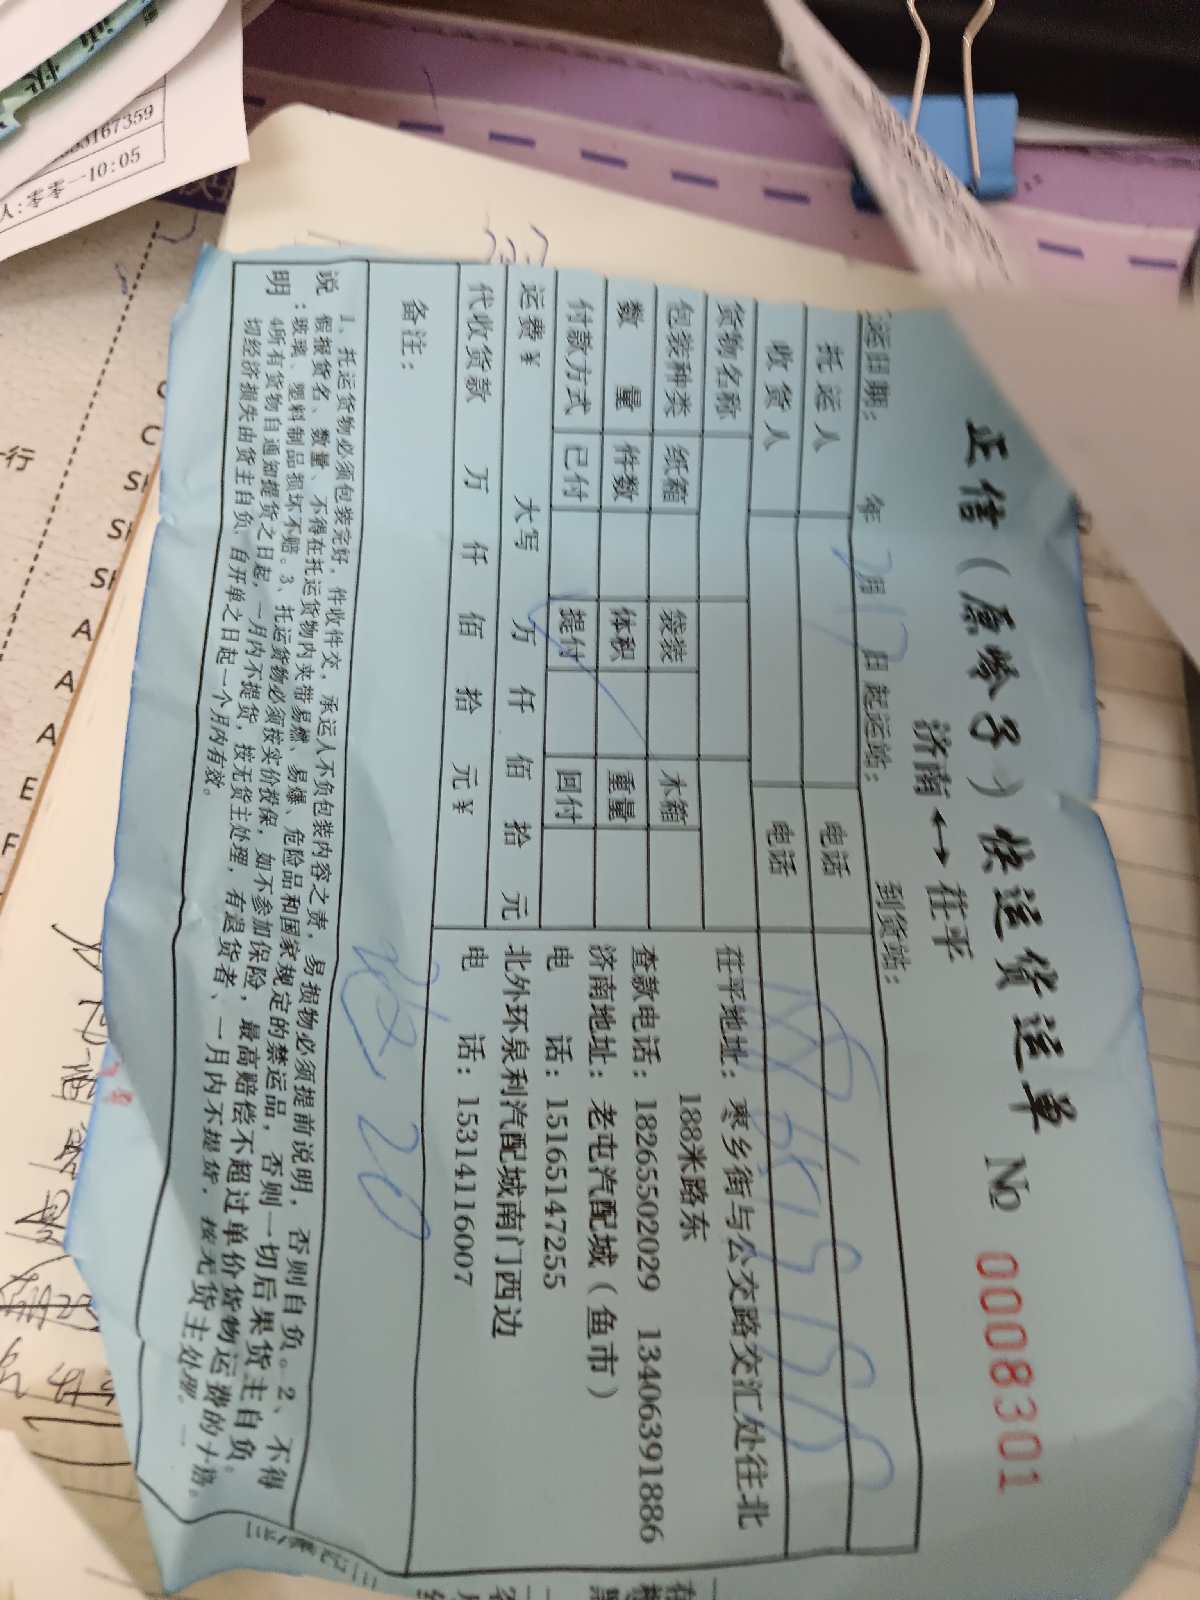 正信（原岭子）快运货运单 № 0008301
济南⟷茌平
运日期： 年 7月17日 起运站： 到货站：
托运人 电话
收货人 电话
货物名称
包装种类 纸箱 袋装 木箱
数量 件数 体积 重量
付款方式 已付 提付 回付
运费¥ 大写 万 仟 佰 拾 元
代收货款 万 仟 佰 拾 元¥
茌平地址：枣乡街与公交路交汇处往北
188米路东
查款电话：18265502029 13406391886
济南地址：老屯汽配城（鱼市）
电 话：15165147255
北外环泉利汽配城南门西边
电 话：15314116007
备注： 20
说明：1、托运货物必须包装完好，件收件交，承运人不负包装内容之责，易损物必须提前说明，否则自负。2、不得
假报货名、数量、不得在托运货物内夹带易燃、易爆、危险品和国家规定的禁运品，否则一切后果货主自负。
玻璃、塑料制品损坏不赔。3、托运货物必须按实价投保，如不参加保险，最高赔偿不超过单价货物运费的十倍。
4所有货物自通知提货之日起，一月内不提货，按无货主处理，有退货者、一月内不提货，按无货主处理。一
切经济损失由货主自负，自开单之日起一个月内有效。
167359
人:零零一10:05
行